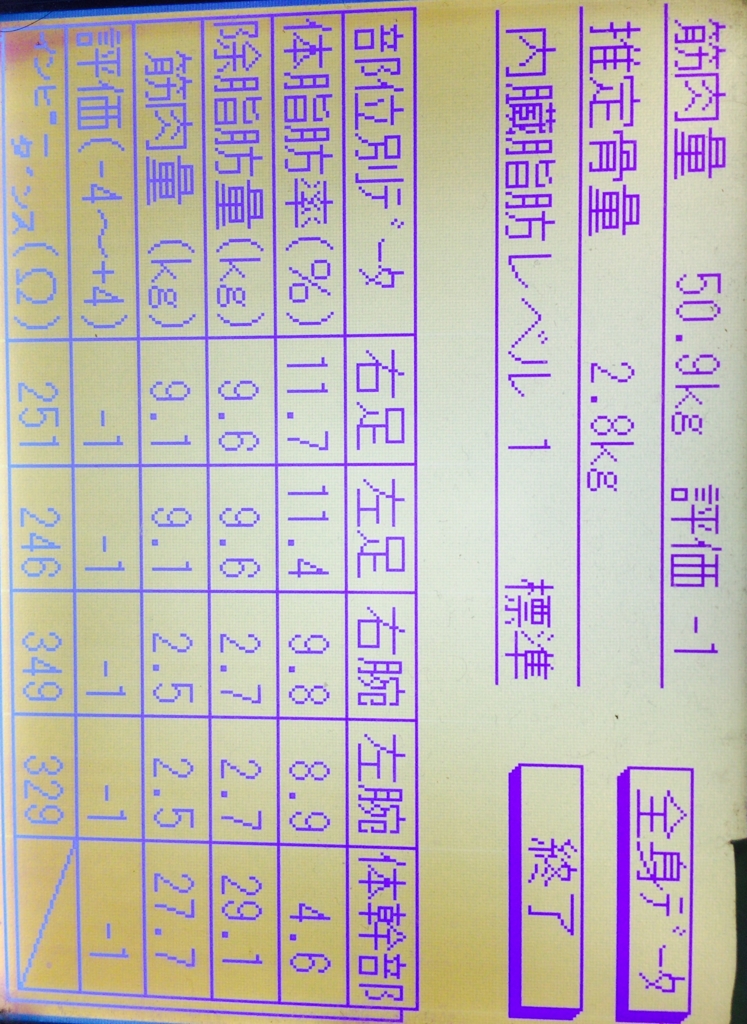 筋肉量 50.9kg 評価 -1
推定骨量 2.8kg
内臓脂肪レベル 1 標準
全身データ
終了
部位別データ 右足 左足 右腕 左腕 体幹部
体脂肪率(%) 11.7 11.4 9.8 8.9 4.6
除脂肪量(kg) 9.6 9.6 2.7 2.7 29.1
筋肉量 (kg) 9.1 9.1 2.5 2.5 27.7
評価(-4~+4) -1 -1 -1 -1 -1
インピーダンス(Ω) 251 246 349 329